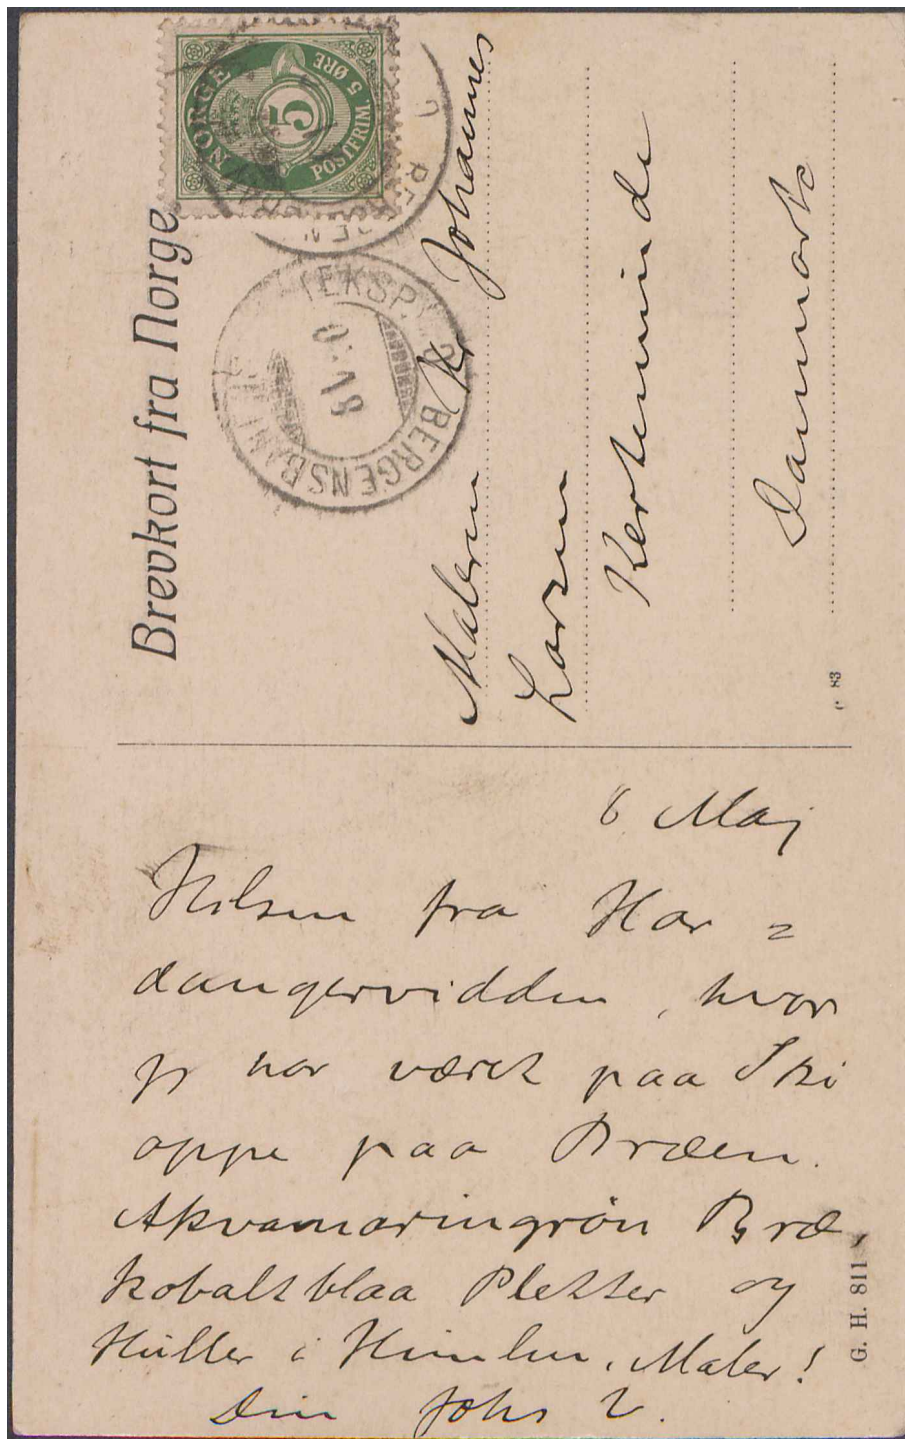 Brevkort fra Norge
NORGE
POSTFRIM. 5 ØRE
5
BERGEN
EKSP. N. 2
BERGENSBANENS
8 V 10
Maleren Hr Johannes
Larsen
Kerteminde
Danmark
83
6 Maj
Hilsen fra Har=
dangervidden, hvor
jeg har været paa Ski
oppe paa Bræen.
Akvamaringrön Bræ,
koboltblaa Pletter og
Huller i Himlen, Maler!
Din Johs V.
G. H. 811